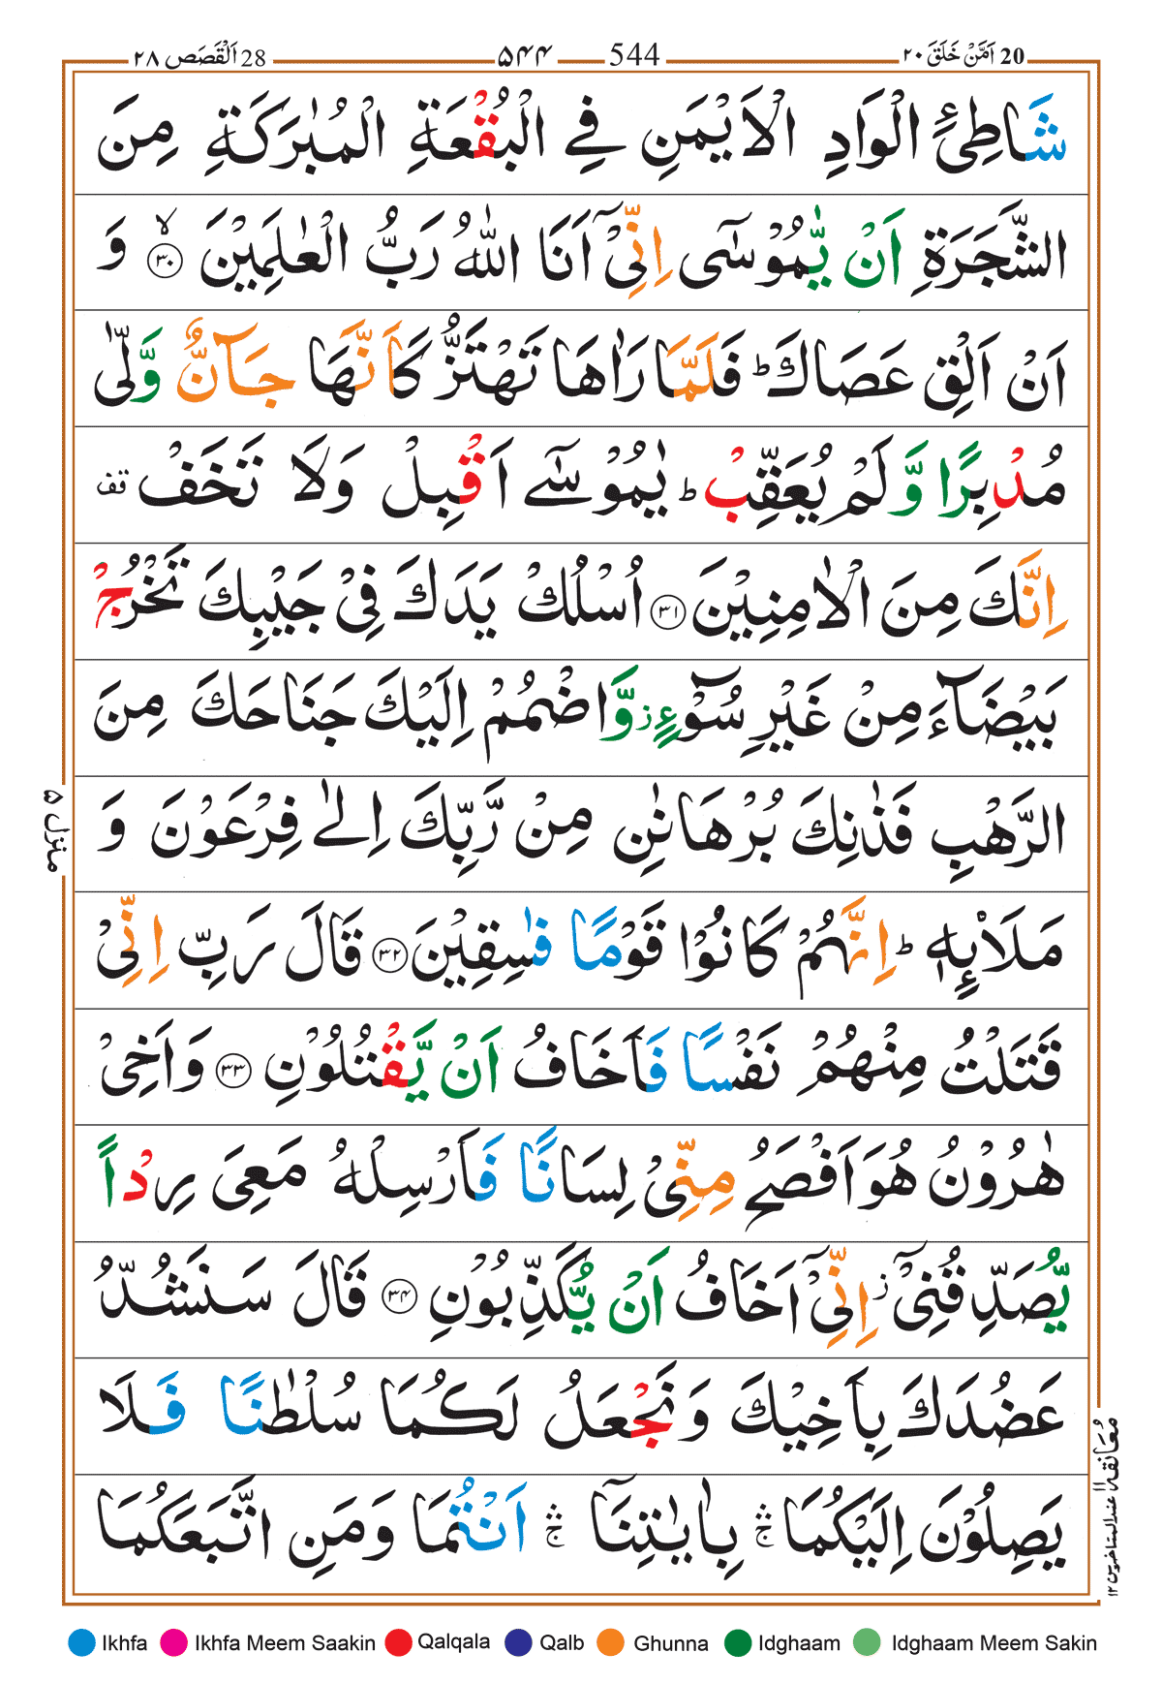 20 اَمَّنْ خَلَقَ ٢٠
544 ۵۴۴
28 اَلْقَصَص ٢٨
شَاطِئِ الْوَادِ الْاَيْمَنِ فِي الْبُقْعَةِ الْمُبٰرَكَةِ مِنَ
الشَّجَرَةِ اَنْ يّٰمُوْسٰٓى اِنِّيْٓ اَنَا اللّٰهُ رَبُّ الْعٰلَمِيْنَ ۙ‏ ﴿۳۰﴾ وَ
اَنْ اَلْقِ عَصَاكَ ؕ فَلَمَّا رَاٰهَا تَهْتَزُّ كَاَنَّهَا جَآنٌّ وَّلّٰى
مُدْبِرًا وَّلَمْ يُعَقِّبْ ؕ يٰمُوْسٰٓى اَقْبِلْ وَلَا تَخَفْ قف
اِنَّكَ مِنَ الْاٰمِنِيْنَ ﴿۳۱﴾ اُسْلُكْ يَدَكَ فِيْ جَيْبِكَ تَخْرُجْ
بَيْضَآءَ مِنْ غَيْرِ سُوْٓءٍ ز وَّاضْمُمْ اِلَيْكَ جَنَاحَكَ مِنَ
الرَّهْبِ فَذٰنِكَ بُرْهَانٰنِ مِنْ رَّبِّكَ اِلٰى فِرْعَوْنَ وَ
مَلَا۟ئِهٖ ؕ اِنَّهُمْ كَانُوْا قَوْمًا فٰسِقِيْنَ ﴿۳۲﴾ قَالَ رَبِّ اِنِّيْ
قَتَلْتُ مِنْهُمْ نَفْسًا فَاَخَافُ اَنْ يَّقْتُلُوْنِ ﴿۳۳﴾ وَاَخِيْ
هٰرُوْنُ هُوَ اَفْصَحُ مِنِّيْ لِسَانًا فَاَرْسِلْهُ مَعِيَ رِدْاً
يُّصَدِّقُنِيْٓ ز اِنِّيْٓ اَخَافُ اَنْ يُّكَذِّبُوْنِ ﴿۳۴﴾ قَالَ سَنَشُدُّ
عَضُدَكَ بِاَخِيْكَ وَنَجْعَلُ لَكُمَا سُلْطٰنًا فَلَا
يَصِلُوْنَ اِلَيْكُمَا ۛ ج بِاٰيٰتِنَآ ۛ ج اَنْتُمَا وَمَنِ اتَّبَعَكُمَا
منزل ۵
معانقة ۱۱ عند المتاخرین ۱۲
Ikhfa Ikhfa Meem Saakin Qalqala Qalb Ghunna Idghaam Idghaam Meem Sakin